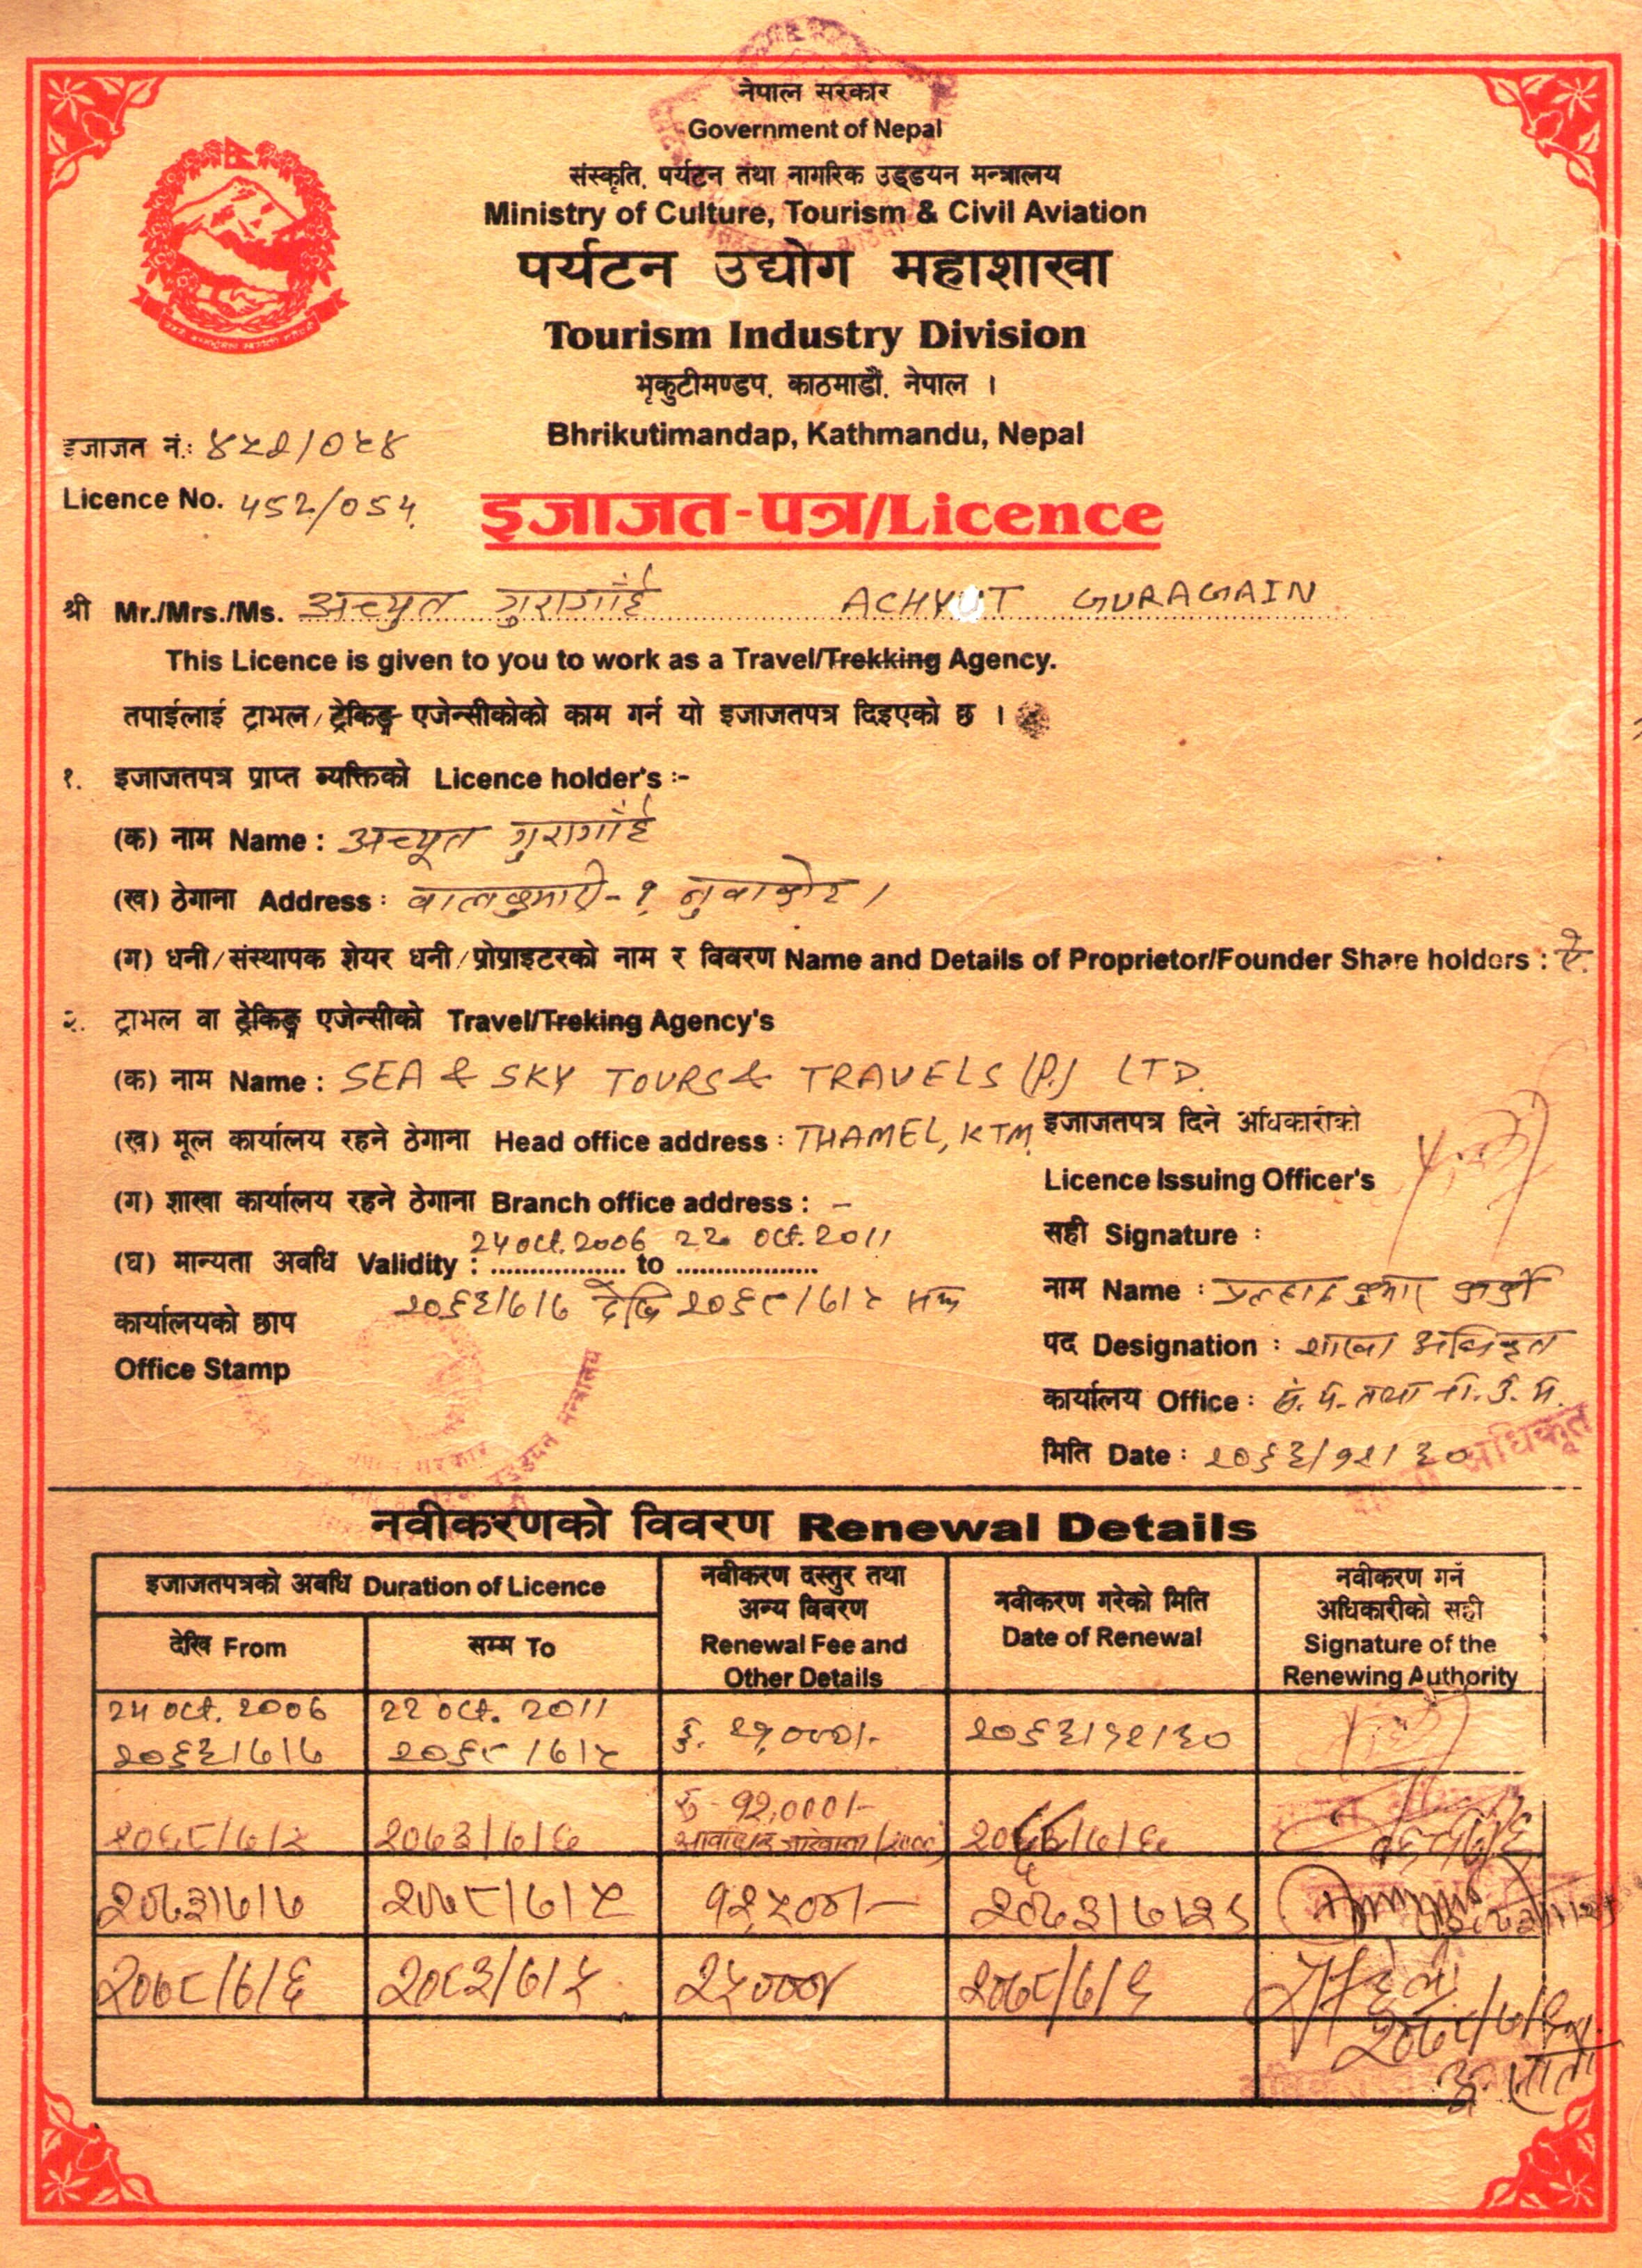 नेपाल सरकार
Government of Nepal
संस्कृति, पर्यटन तथा नागरिक उड्डयन मन्त्रालय
Ministry of Culture, Tourism & Civil Aviation
पर्यटन उद्योग महाशाखा
Tourism Industry Division
भृकुटीमण्डप, काठमाडौं, नेपाल ।
Bhrikutimandap, Kathmandu, Nepal
इजाजत नं.: ४५२/०५४
Licence No. 452/054
इजाजत-पत्र/Licence
श्री Mr./Mrs./Ms. अच्युत गुरागाँई ACHYUT GURAGAIN
This Licence is given to you to work as a Travel/Trekking Agency.
तपाईलाई ट्राभल/ट्रेकिङ्ग एजेन्सीकोको काम गर्न यो इजाजतपत्र दिइएको छ ।
१. इजाजतपत्र प्राप्त व्यक्तिको Licence holder's :-
(क) नाम Name : अच्यूत गुरागाँई
(ख) ठेगाना Address : बालकुमारी-१ नुवाकोट ।
(ग) धनी/संस्थापक शेयर धनी/प्रोप्राइटरको नाम र विवरण Name and Details of Proprietor/Founder Share holders : ऐ.
२. ट्राभल वा ट्रेकिङ्ग एजेन्सीको Travel/Treking Agency's
(क) नाम Name : SEA & SKY TOURS & TRAVELS (P.) LTD.
(ख) मूल कार्यालय रहने ठेगाना Head office address : THAMEL, KTM.
(ग) शाखा कार्यालय रहने ठेगाना Branch office address : -
24 Oct. 2006 22 Oct. 2011
(घ) मान्यता अवधि Validity : ................. to ..................
२०६३/७/७ देखि २०६८/७/५ सम्म
कार्यालयको छाप
Office Stamp
इजाजतपत्र दिने अधिकारीको
Licence Issuing Officer's
सही Signature :
नाम Name : प्रल्हाद कुमार कार्की
पद Designation : शाखा अधिकृत
कार्यालय Office : सं. प. तथा ना. उ. म.
मिति Date : २०६३/१२/३०
नवीकरणको विवरण Renewal Details
इजाजतपत्रको अवधि Duration of Licence
देखि From
सम्म To
नवीकरण दस्तुर तथा
अन्य विवरण
Renewal Fee and
Other Details
नवीकरण गरेको मिति
Date of Renewal
नवीकरण गर्ने
अधिकारीको सही
Signature of the
Renewing Authority
24 Oct. 2006 22 Oct. 2011
२०६३/७/७ २०६८/७/५ रु. २१,०००/- २०६३/१२/३०
रु १२,०००/-
२०६८/७/५ २०७३/७/६ २०६८/७/६
२०७३/७/७ २०७८/७/५ १२५००/- २०७३/७/२६
२०७८/७/६ २०८३/७/५ २५००० २०७८/७/६